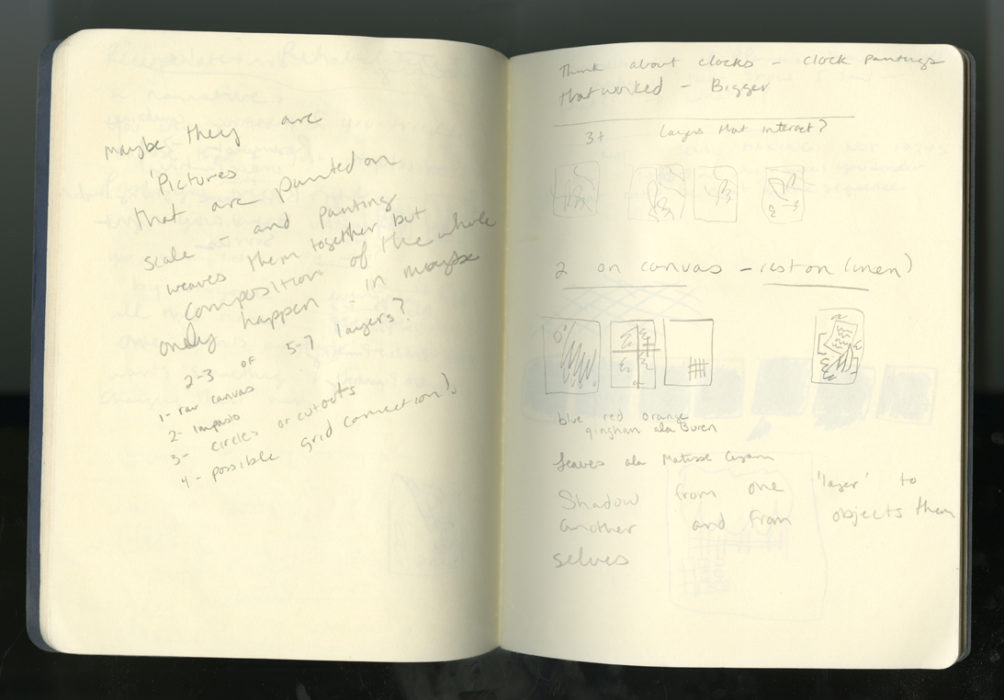 maybe they are
'Pictures
that are painted on
scale - and painting
weaves them together but
composition of the whole
only happen - in maybe
2-3 of 5-7 layers?
1- raw canvas
2- impasto
3- circles or cutouts
4- possible grid connection?
Think about clocks - clock paintings
that worked - Bigger
3+ layers that interact?
2 on canvas - rest on linen)
blue red orange
gingham ala Buren
leaves ala Matisse
Shadow from one 'layer' to
another and from objects them
selves